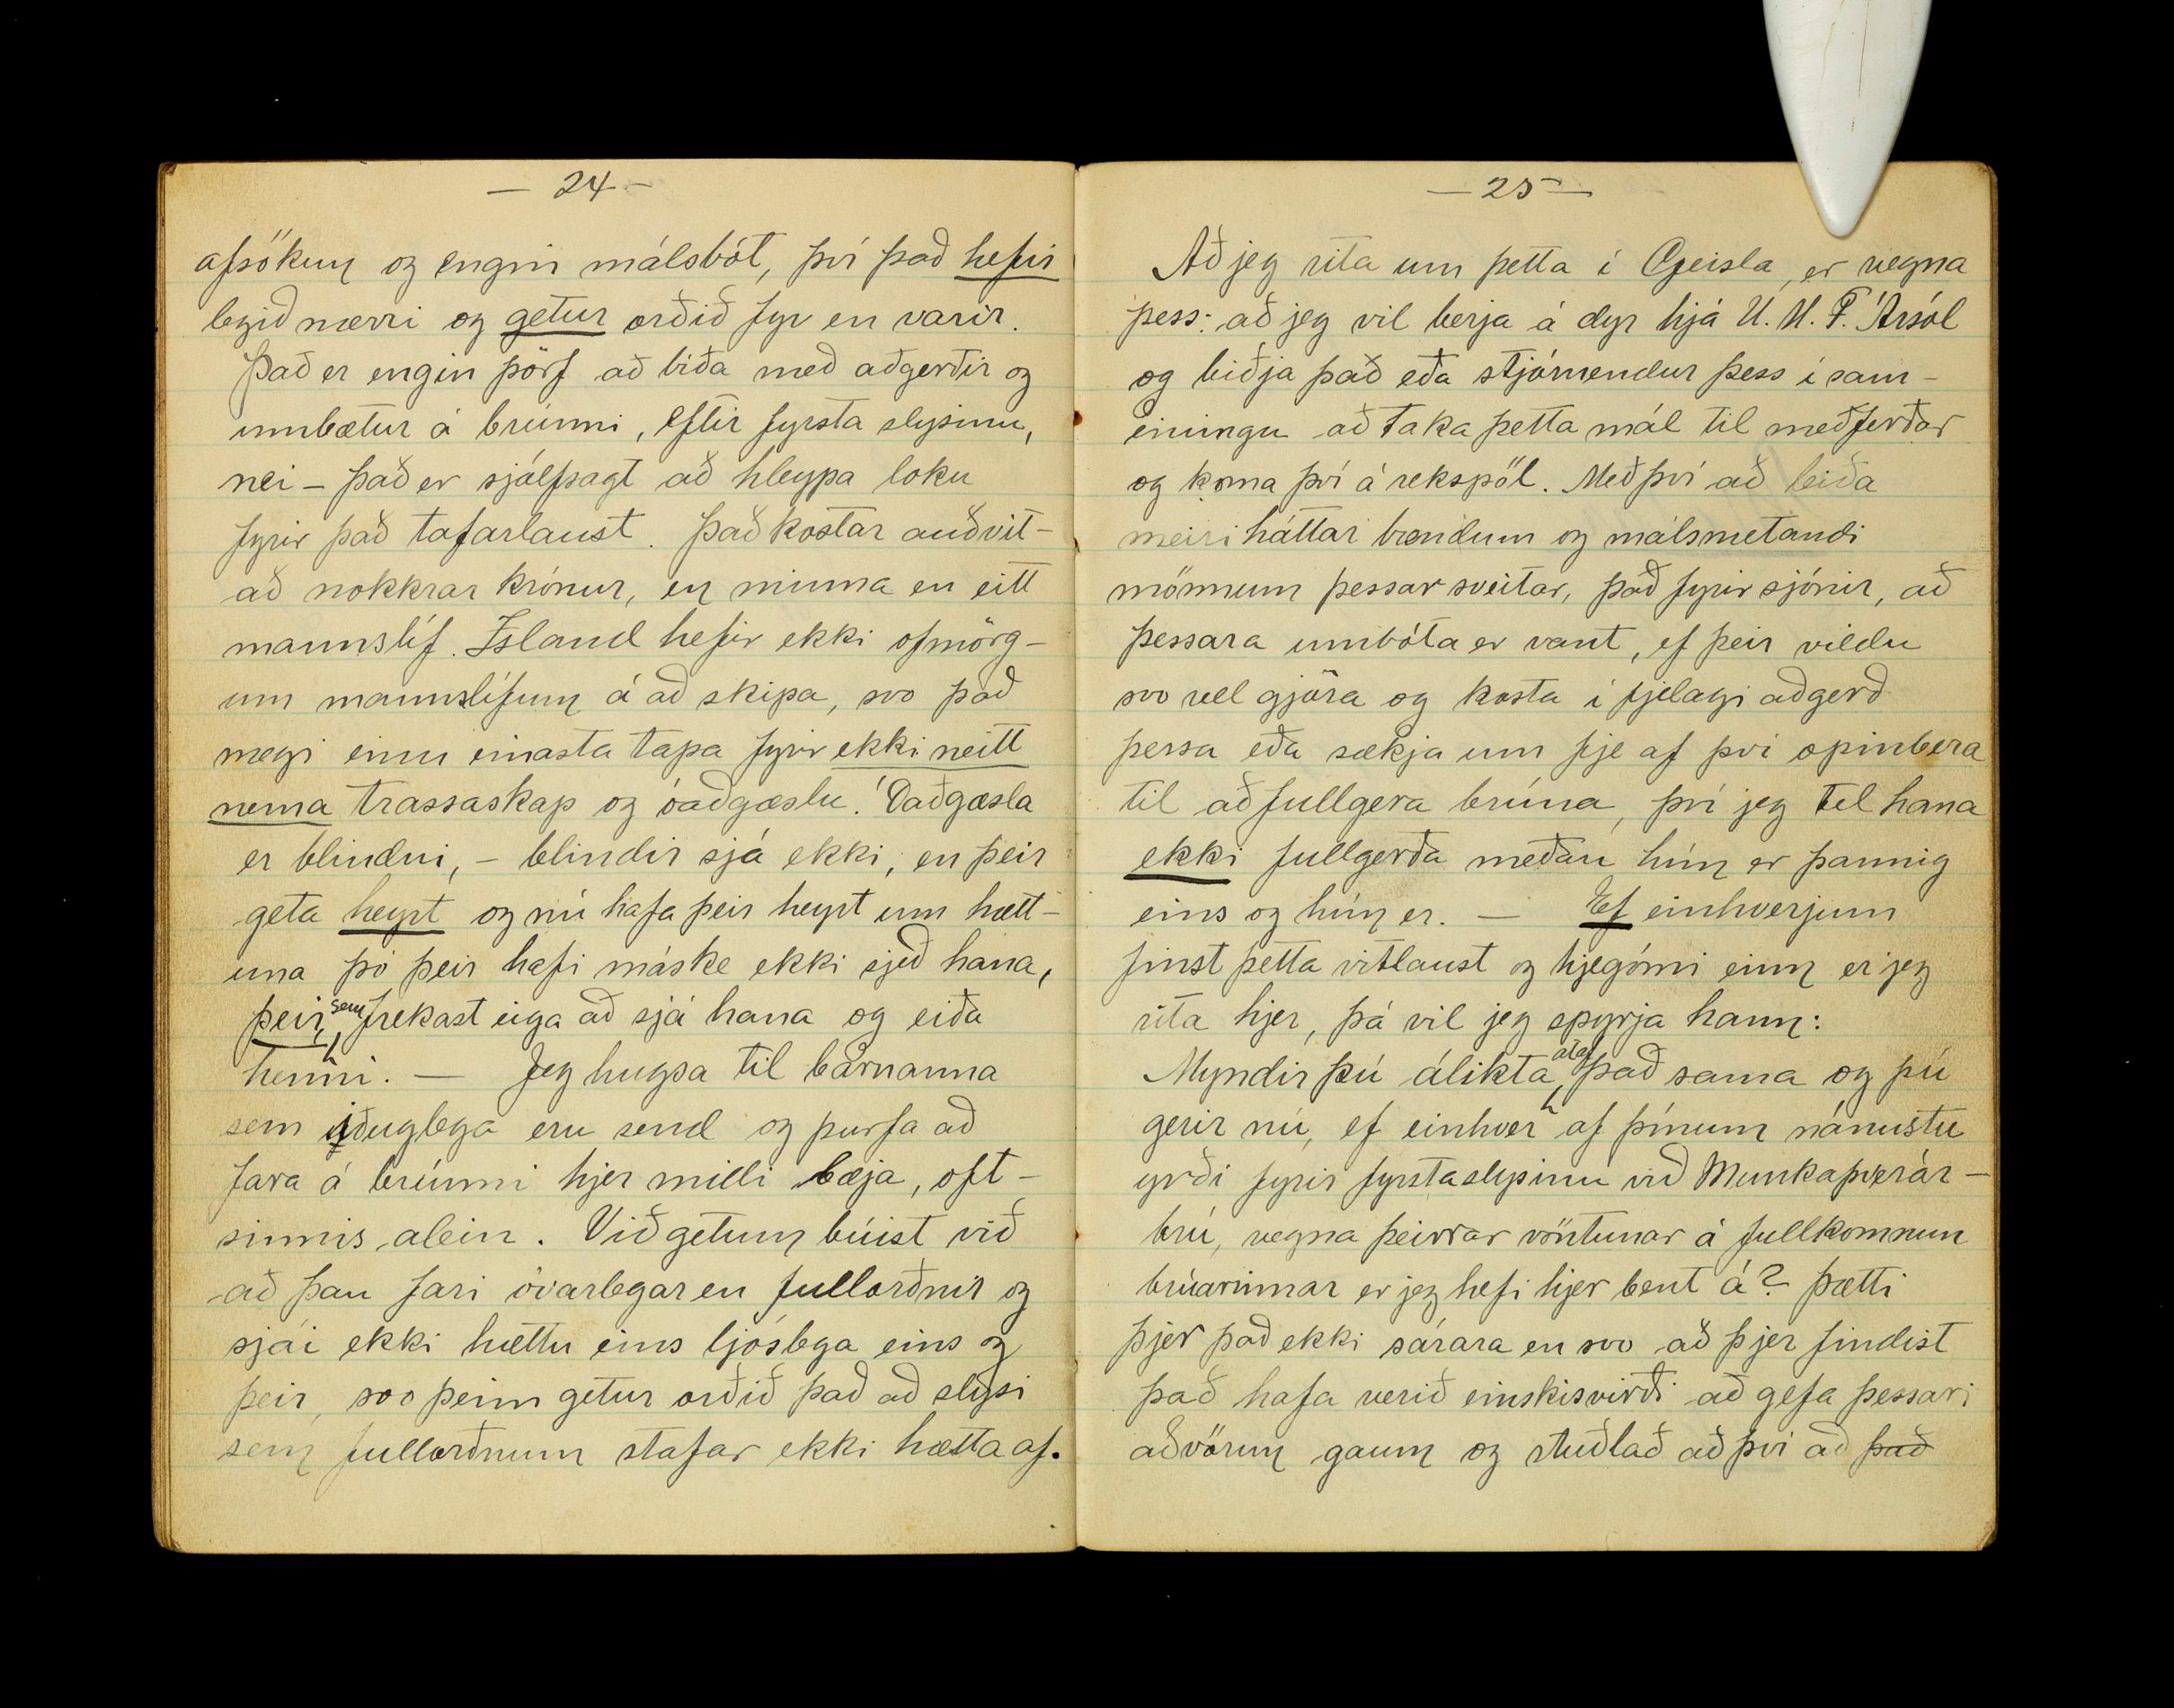 — 24 —
afsökun og engin málsbót, því það hefir
legið nærri og getur orðið fyr en varir.
Það er engin þörf að bíða með aðgerðir og
umbætur á brúnni, eftir fyrsta slysinu,
nei – það er sjálfsagt að hleypa loku
fyrir það tafarlaust. Það kostar auðvit-
að nokkrar krónur, en minna en eitt
mannslíf. Ísland hefir ekki ofmörg-
um mannslífum á að skipa, svo það
megi einu einasta tapa fyrir ekki neitt
nema trassaskap og óaðgæslu. Óaðgæsla
er blindni, – blindir sjá ekki, en þeir
geta heyrt og nú hafa þeir heyrt um hætt-
una þó þeir hafi máske ekki sjeð hana,
þeir, sem frekast eiga að sjá hana og eiða
henni. — Jeg hugsa til barnanna
sem iðuglega eru send og þurfa að
fara á brúnni hjer milli bæja, oft-
sinnis alein. Við getum búist við
að þau fari óvarlegar en fullorðnir og
sjái ekki hættu eins ljóslega eins og
þeir, svo þeim getur orðið það að slysi
sem fullorðnum stafar ekki hætta af.
— 25 —
Að jeg rita um þetta í Geisla, er vegna
þess: að jeg vil berja á dyr hjá U. M. F. Ársól
og biðja það eða stjórnendur þess í sam-
einingu að taka þetta mál til meðferðar
og koma því á rekspöl. Með því að leiða
meiri háttar bændum og málsmetandi
mönnum þessar sveitar, það fyrir sjónir, að
þessara umbóta er vant, ef þeir vildu
svo vel gjöra og kosta í fjelagi aðgerð
þessa eða sækja um fje af því opinbera
til að fullgera brúna, því jeg tel hana
ekki fullgerða meðan hún er þannig
eins og hún er. — Ef einhverjum
finst þetta vitlaust og hjegómi einn er jeg
rita hjer, þá vil jeg spyrja hann:
Myndir þú álíkta, það sama og þú
gerir nú, ef einhver af þínum nánustu
yrði fyrir fyrsta slysinu við Munkaþverár-
brú, vegna þeirrar vöntunar á fullkomnun
brúarinnar er jeg hefi hjer bent á? Þætti
þjer það ekki sárara en svo að þjer findist
það hafa verið einskisvirði að gefa þessari
aðvörun gaum og stuðlað að því að það